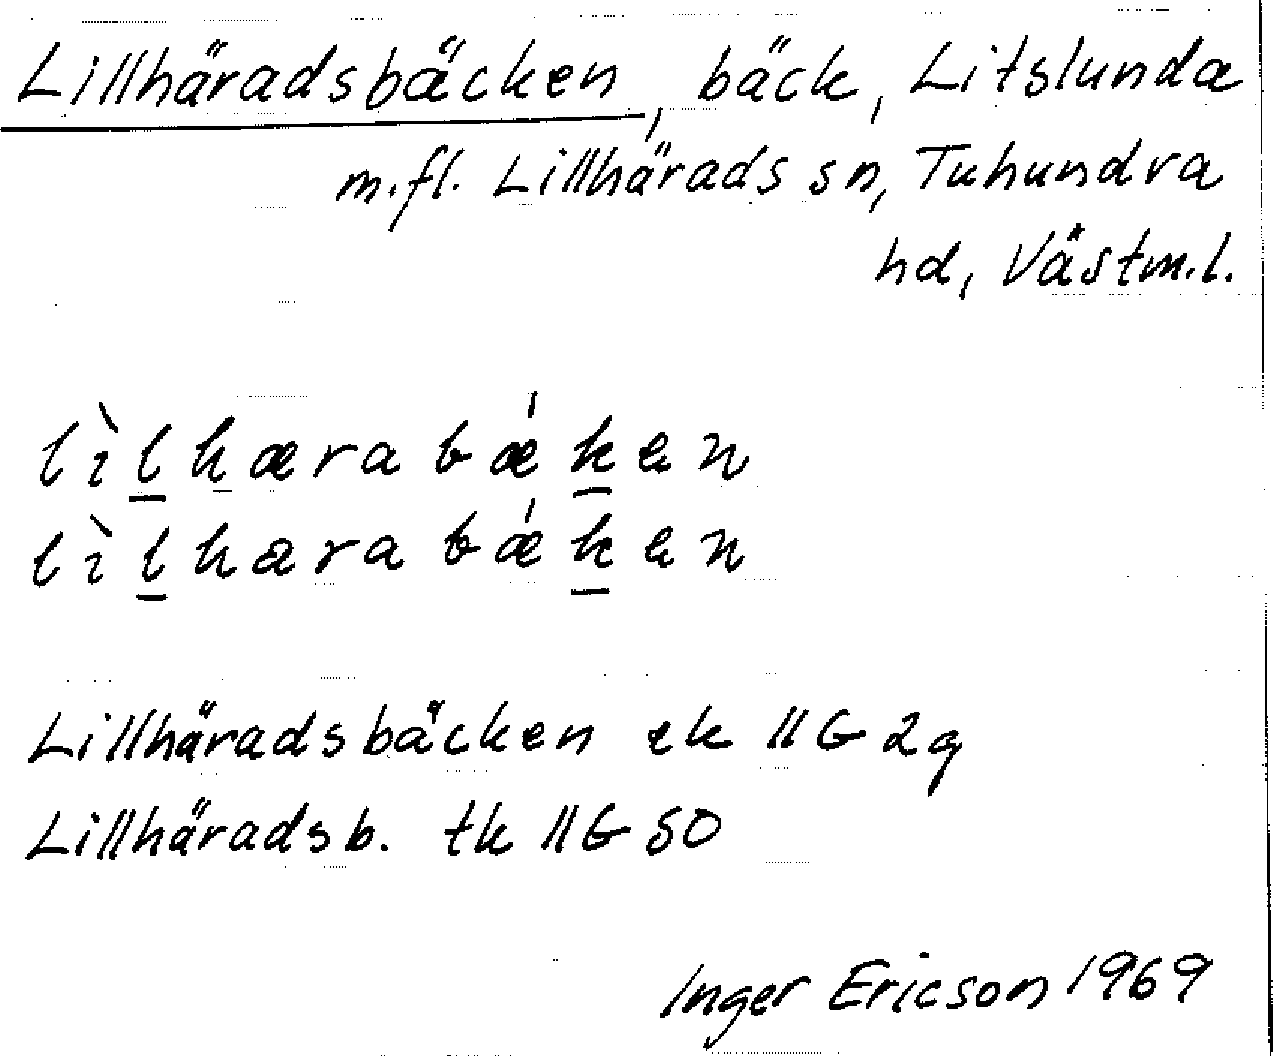 Lillhäradsbäcken, bäck, Litslunda
m.fl. Lillhärads sn, Tuhundra
hd, Västm.l.
lìlhæra bǽken
lìlhara bǽken
Lillhäradsbäcken ek 11G 2g
Lillhäradsb. tk 11G SO
Inger Ericson 1969